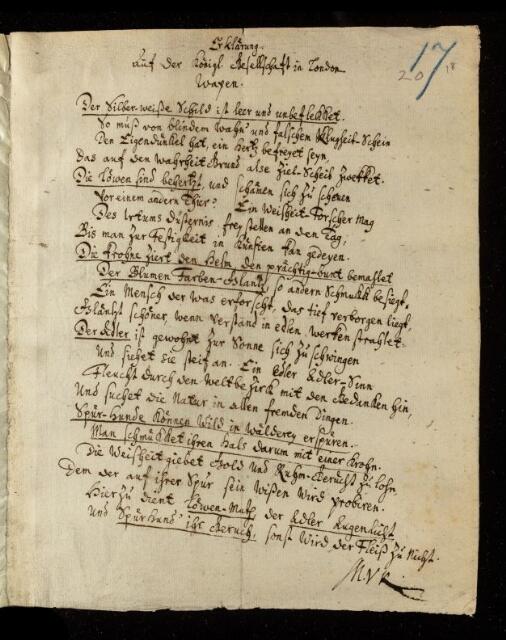 17
20 18
Erklärung.
Auf der Königl Gesellschaft in London
Wapen.
Der Silber-weiße Schild ist leer und unbeflekket.
So muß von blindem Wahn und falschen Klugheit-Schein
Den Eigendünkel hat, ein Hertz befreyet seyn,
Das auf den Wahrheit Grund alse Ziel-Scheib zwekket.
Die Löwen sind behertzt, und schämen sich zu scheuen
Vor einem andern Thier? Ein Weisheit-Forscher mag
Des Irtums Düsternis frey stellen an den Tag,
Bis man zur Festigkeit in Künsten kan gedeyen.
Die Krohne ziert den Helm den prächtig-bunt bemahlet
Der Blumen Farben-Glantz, so andern Schmukk besiegt.
Ein Mensch der was erforscht, das tief verborgen liegt,
Gläntzt schöner, wenn Verstand in edlen werken strahlet.
Der Adler ist gewohnt zur Sonne sich zu schwingen
Und siehet sie steif an. Ein edler Adler-Sinn
Fleucht durch den Weltbezirk mit den Gedanken hin,
Und suchet die Natur in allen fremden Dingen.
Spür-Hunde können Wild in Wälderey erspüren.
Man schmükket ihren Hals darum mit einer Krohn.
Die Weisheit giebet Gold und Ruhm-Gerücht zu lohn,
Dem der auf ihrer Spür sein Wißen Wird probiren.
Hierzu dient Löwen-Muth, der Adler Augenlicht,
Und Spür Hund' ihr Geruch, sonst Wird der Fleiß zu Nicht.
M.V.K.